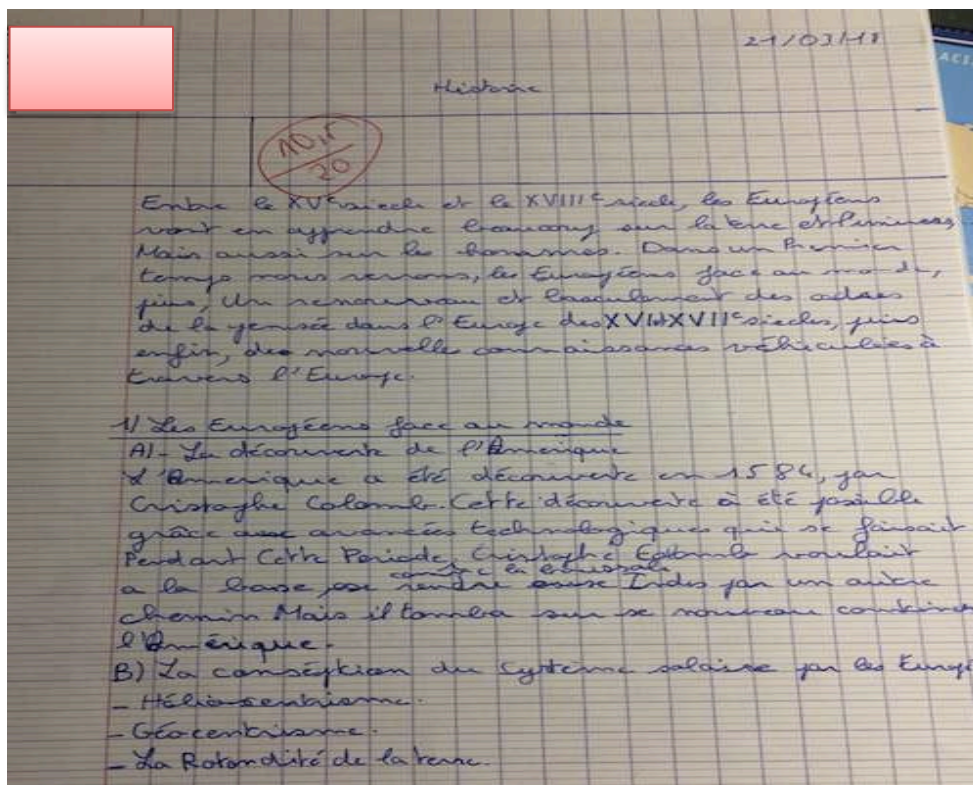 21/03/18
Histoire
10,5
20
Entre le XVe siecle et le XVIIIe siecle, les Européens
vont en apprendre beaucoup sur la terre et l'univers,
Mais aussi sur les hommes. Dans un Premier
temps nous verrons, les Européens face au monde,
puis, Un renouveau et basculement des
de la pensée dans l'Europe des XVI et XVIIe siecles, puis
enfin, des nouvelle connaissances véhiculées à
travers l'Europe.
1) Les Européens face au monde
A)- La découverte de l'Amerique
L'Amerique a été découverte en 1584, par
Cristophe Colomb. Cette découverte à été possible
grâce aux avancées technologiques qui se faisait
Pendant Cette Periode, Cristophe Colomb voulait
a la base, se rendre aux Indes par un autre
chemin Mais il tomba sur se nouveau contine
l'Amérique.
B) La conséption du système solaire par les Europé
- Héliosentrisme.
- Géocentrisme.
- La Rotondité de la terre.